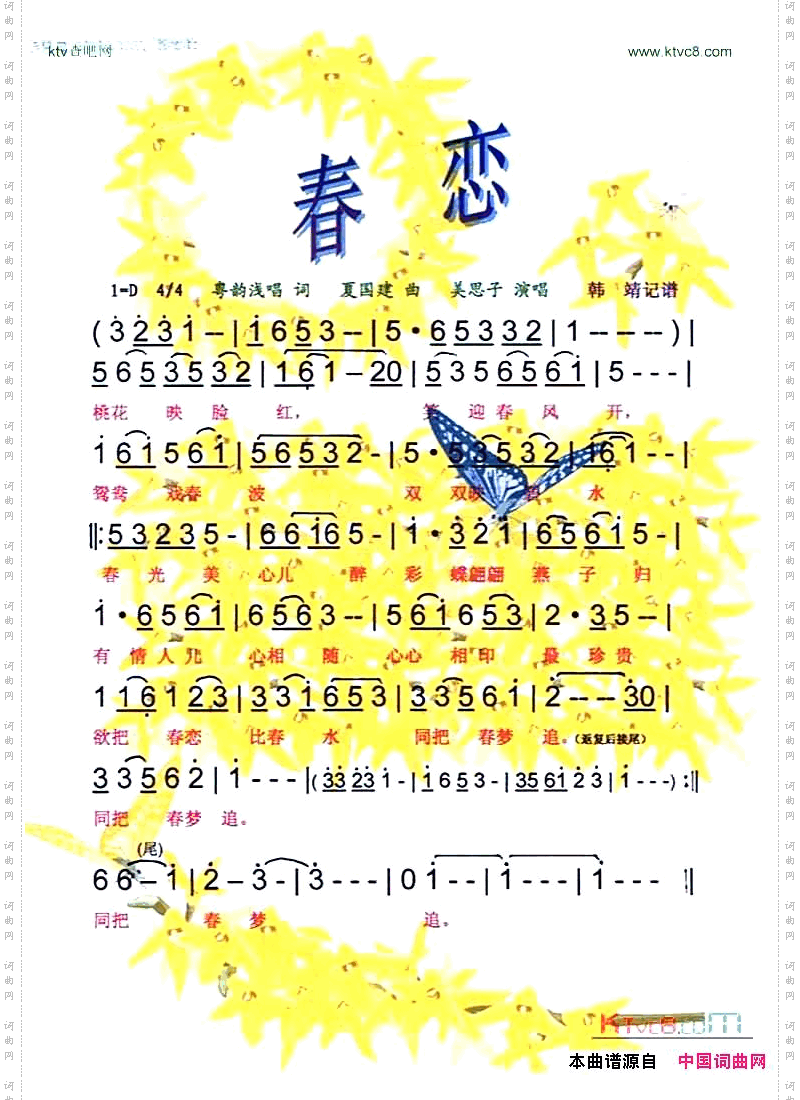 ktv查吧网
www.ktvc8.com
春恋
1=D 4/4 粤韵浅唱 词 夏国建 曲 美思子 演唱 韩 靖记谱
(3 2 3 1 - - | 1 6 5 3 - - | 5 • 6 5 3 3 2 | 1 - - - ) |
5 6 5 3 5 3 2 | 1 6 1 - 2 0 | 5 3 5 6 5 6 1 | 5 - - - |
桃花 映 脸 红, 笑 迎 春 风 开,
1 6 1 5 6 1 | 5 6 5 3 2 - | 5 • 5 3 5 3 2 | 1 6 1 - - |
鸳鸯 戏春 波 双 双映 碧 水
‖: 5 3 2 3 5 - | 6 6 1 6 5 - | 1 • 3 2 1 | 6 5 6 1 5 - |
春 光 美 心儿 醉 彩 蝶翩翩 燕 子 归
1 • 6 5 6 1 | 6 5 6 3 - - | 5 6 1 6 5 3 | 2 • 3 5 - - |
有 情 人 儿 心相 随 心心 相 印 最 珍 贵
1 1 6 1 2 3 | 3 3 1 6 5 3 | 3 3 5 6 1 | 2 - - 3 0 |
欲把 春恋 比春 水 同把 春梦 追。(返复后接尾)
3 3 5 6 2 | 1 - - - | (3 3 2 3 1 - | 1 6 5 3 - | 3 5 6 1 2 3 | 1 - - - ) :‖
同把 春梦 追。
(尾)
6 6 - 1 | 2 - 3 - | 3 - - - | 0 1 - - | 1 - - - | 1 - - - ‖
同把 春 梦 追。
KTVC8.COM
本曲谱源自 中国词曲网
词曲网